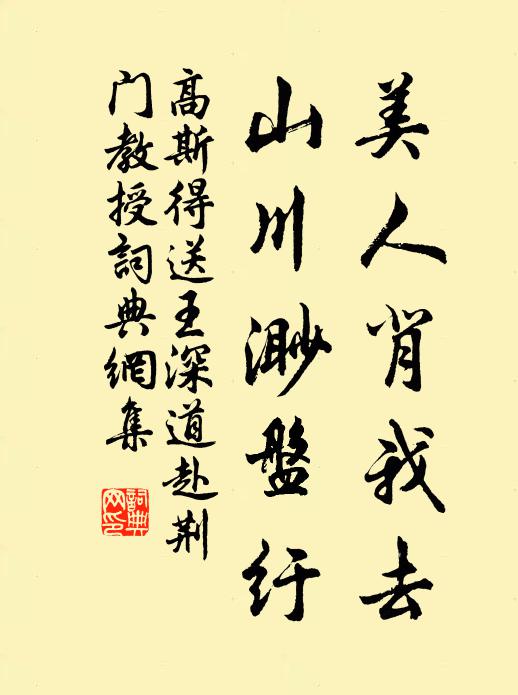 美人肖我去
山川渺盤紆
高斯得送王深道赴荆
門教授詞典網集
詞典
网印